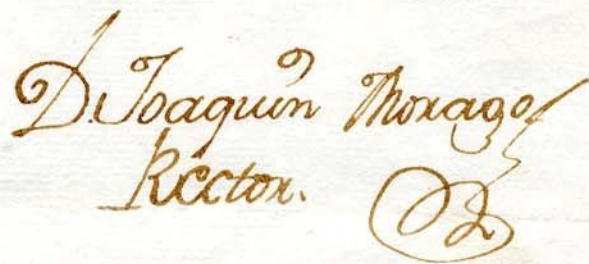 D. Joaquin Morago
Rector.